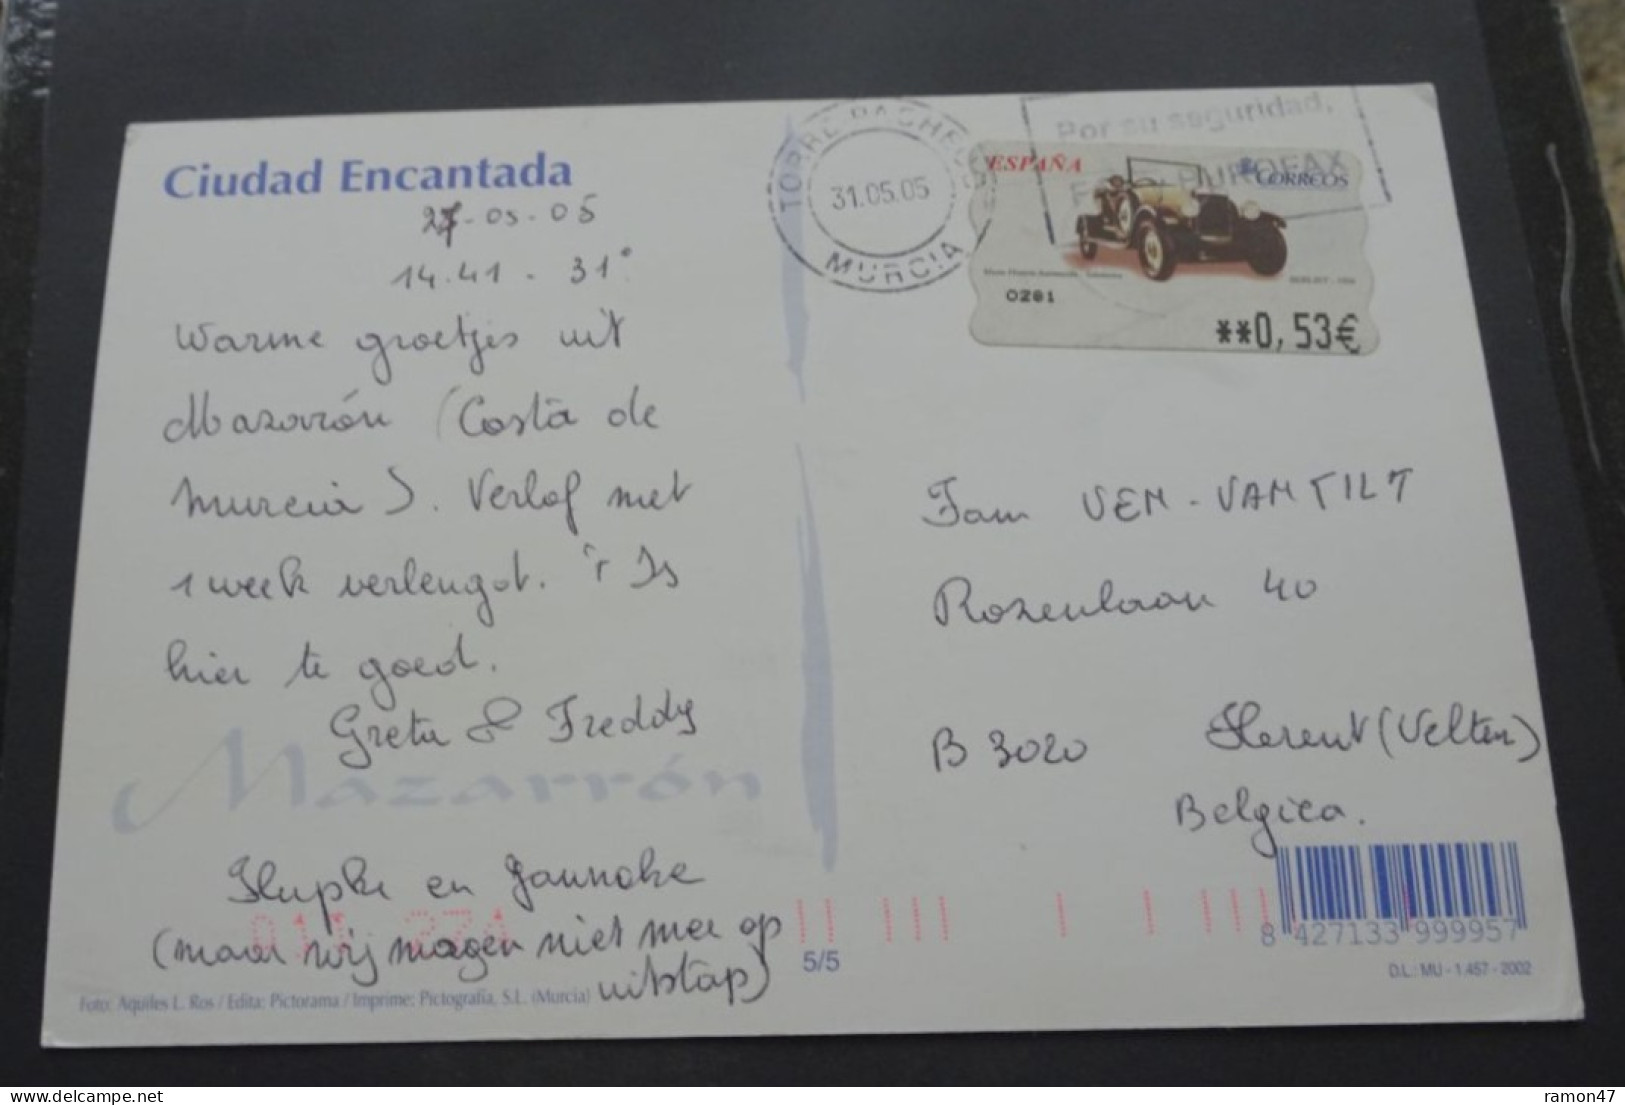 Ciudad Encantada
27-05-05
14.41 - 31°
Warme groetjes uit
Mazarrón (Costa de
Murcia). Verlof met
1 week verlengd. 't Is
hier te goed.
Greta & Freddy
Mazarrón
en
(maar wij mogen niet mee op
uitstap)
Foto: Aquiles L. Ros / Edita: Pictorama / Imprime: Pictografía, S.L. (Murcia)
5/5
TORRE PACHECO
31.05.05
MURCIA
Por su seguridad,
BUROFAX
ESPAÑA
CORREOS
0281
**0,53€
Fam VEN-VANTILT
Rozenlaan 40
B 3020 Herent (Veltem)
Belgica.
8 427133 999957
D.L.: MU - 1.457 - 2002
ramon47